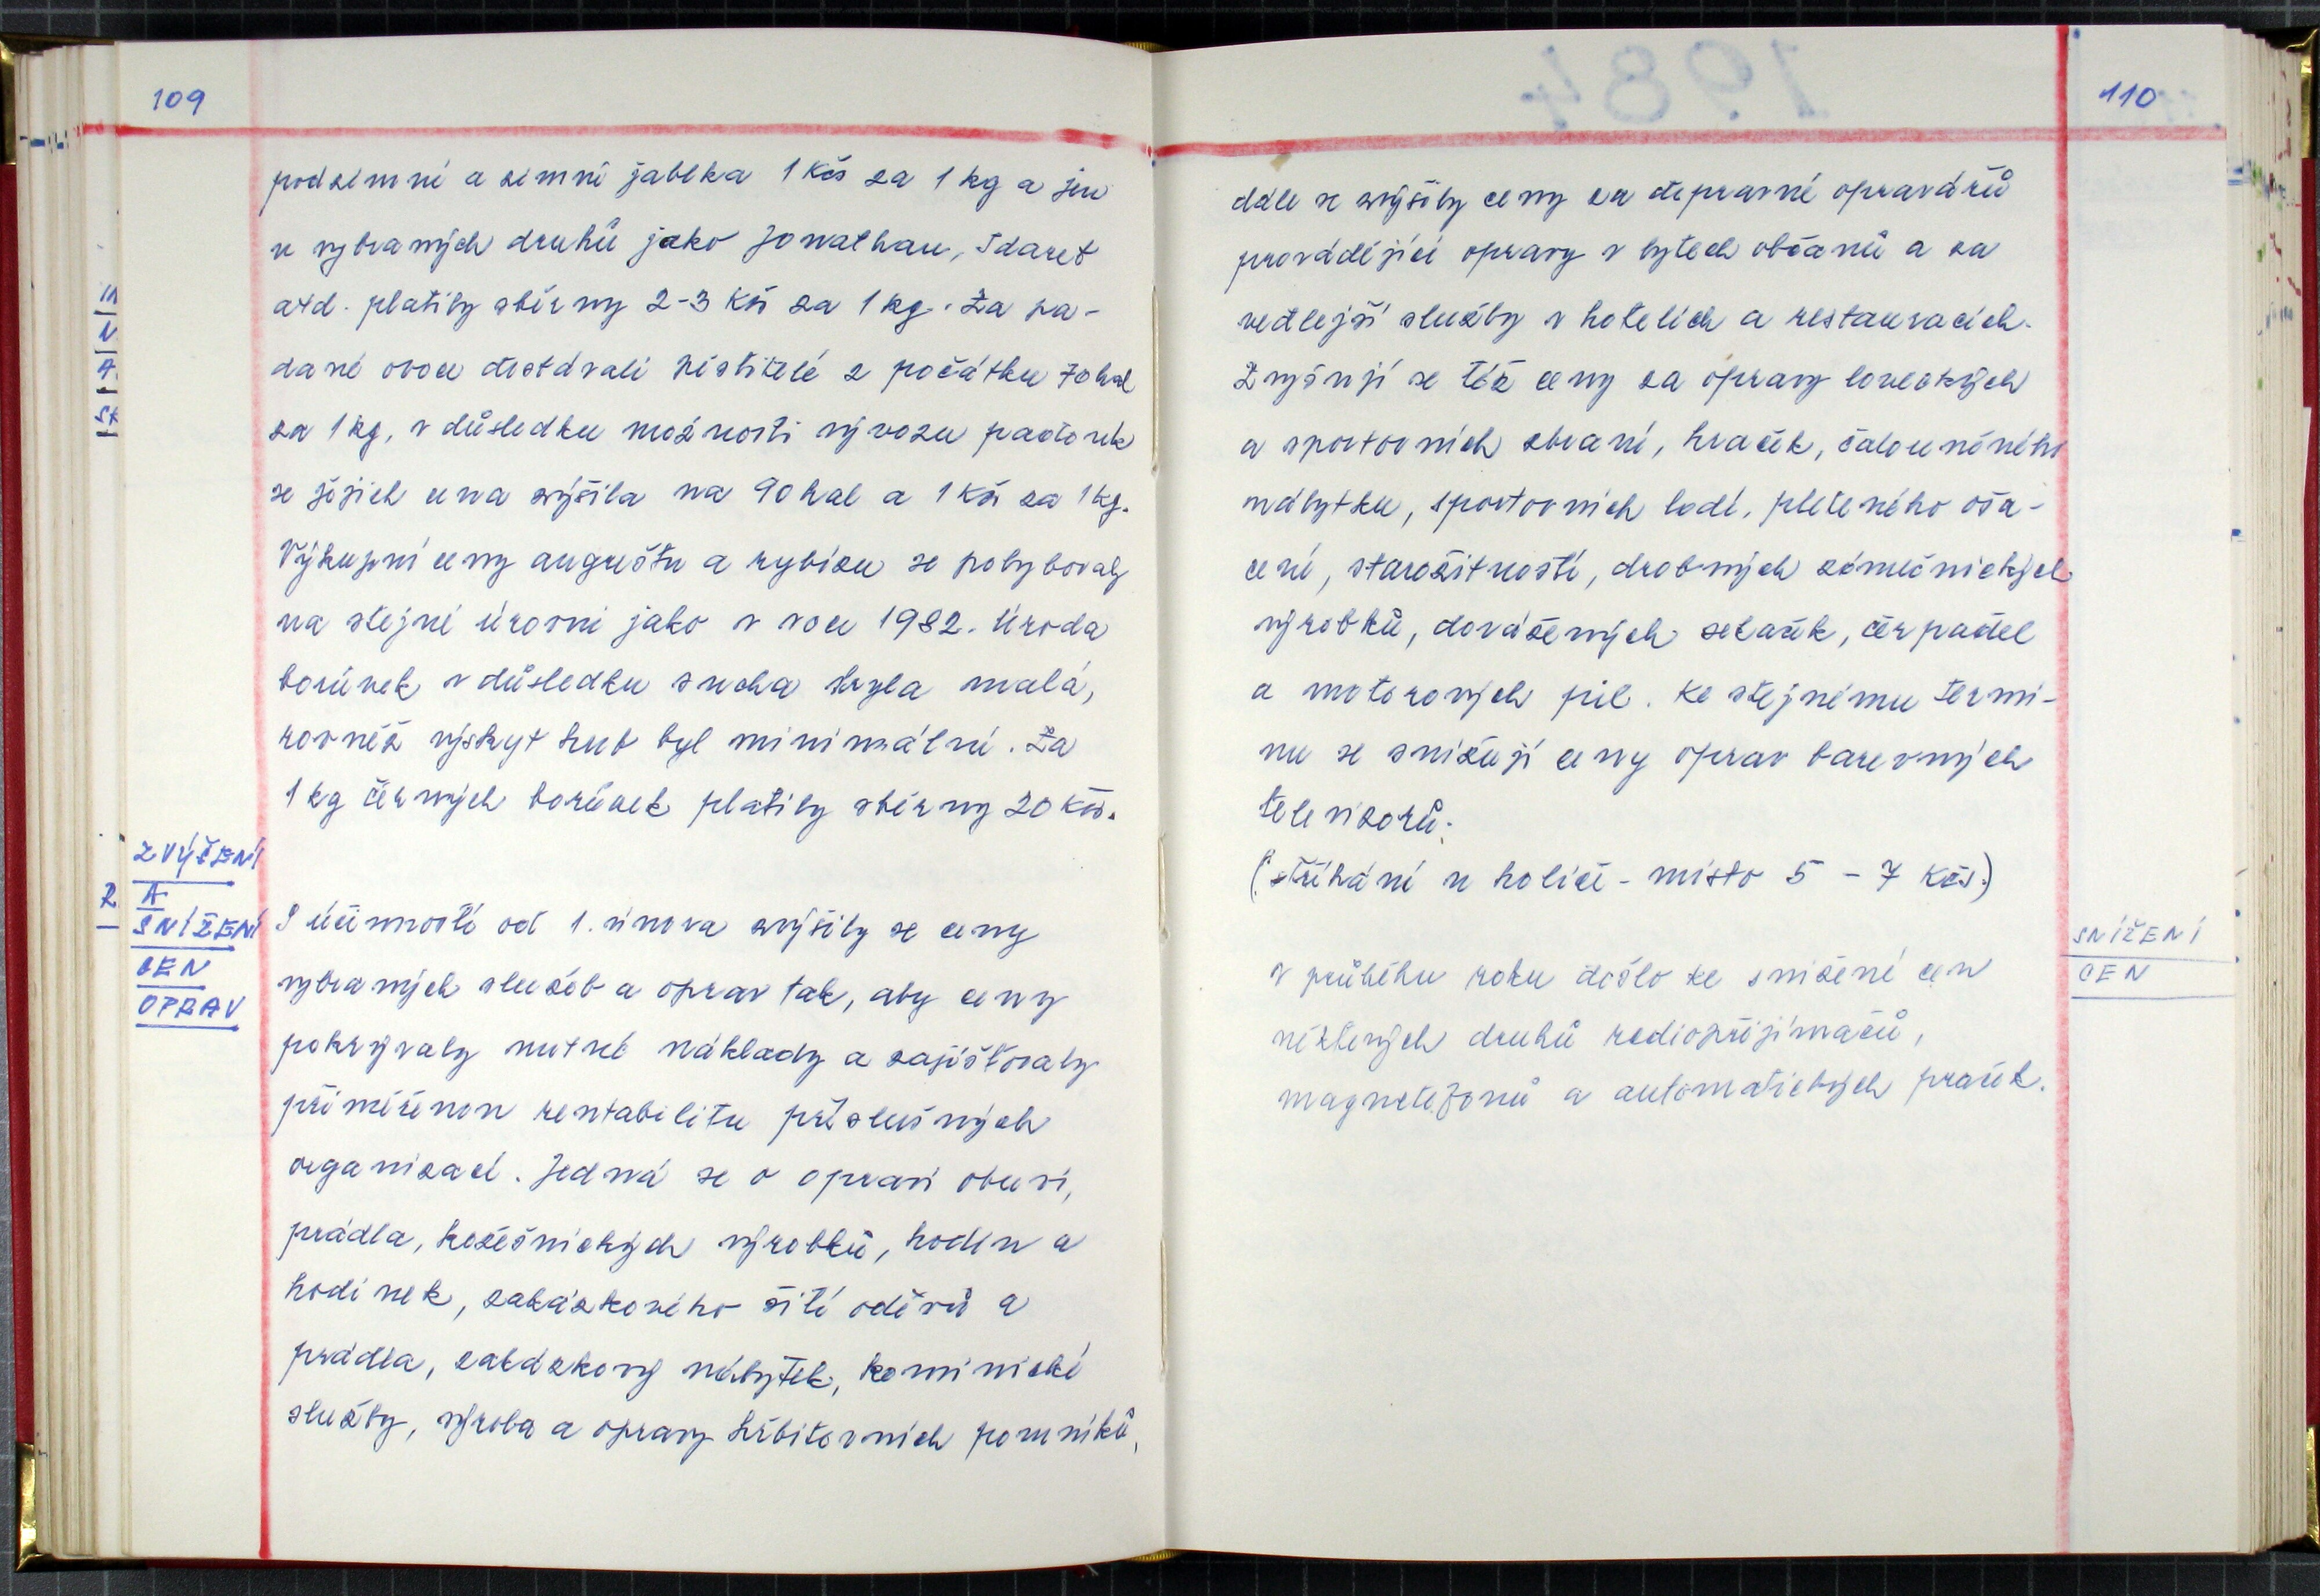 109
podzimní a zimní jablka 1 Kčs za 1 kg a jen
u vybraných druhů jako Jonathan, Idaret
atd. platily sběrny 2-3 Kčs za 1 kg. Za pa-
dané ovoce dostávali pěstitelé z počátku 70 hal
za 1 kg, v důsledku možnosti vývozu padanek
se jejich cena zvýšila na 90 hal a 1 Kčs za 1 kg.
Výkupní ceny angreštu a rybízu se pohybovaly
na stejné úrovni jako v roce 1982. Úroda
borůvek v důsledku sucha byla malá,
rovněž výskyt hub byl minimální. Za
1 kg černých borůvek platily sběrny 20 Kčs.
ZVÝŠENÍ
A
SNÍŽENÍ
CEN
OPRAV
S účinností od 1. února zvýšily se ceny
vybraných služeb a oprav tak, aby ceny
pokrývaly nutné náklady a zajišťovaly
přiměřenou rentabilitu příslušných
organizací. Jedná se o opravi obuvi,
prádla, kožešnických výrobků, hodin a
hodinek, zakázkového šití oděvů a
prádla, zakázkový nábytek, kominické
služby, výroba a opravy hřbitovních pomníků,
110
dále se zvýšily ceny za dopravné opravářů
provádějící opravy v bytech občanů a za
vedlejší služby v hotelích a restauracích.
Zvyšují se též ceny za opravy loveckých
a sportovních zbraní, hraček, čalouněného
nábytku, sportovních lodí, pleteného oša-
cení, starožitností, drobných zámečnických
výrobků, dovážených sekaček, čerpadel
a motorových pil. Ke stejnému termí-
nu se snižují ceny oprav barevných
televizorů.
(Stříhání u holiče - místo 5 - 7 Kčs.)
SNÍŽENÍ
CEN
V průběhu roku došlo ke snížené cen
některých druhů radiopřijímačů,
magnetofonů a automatických praček.